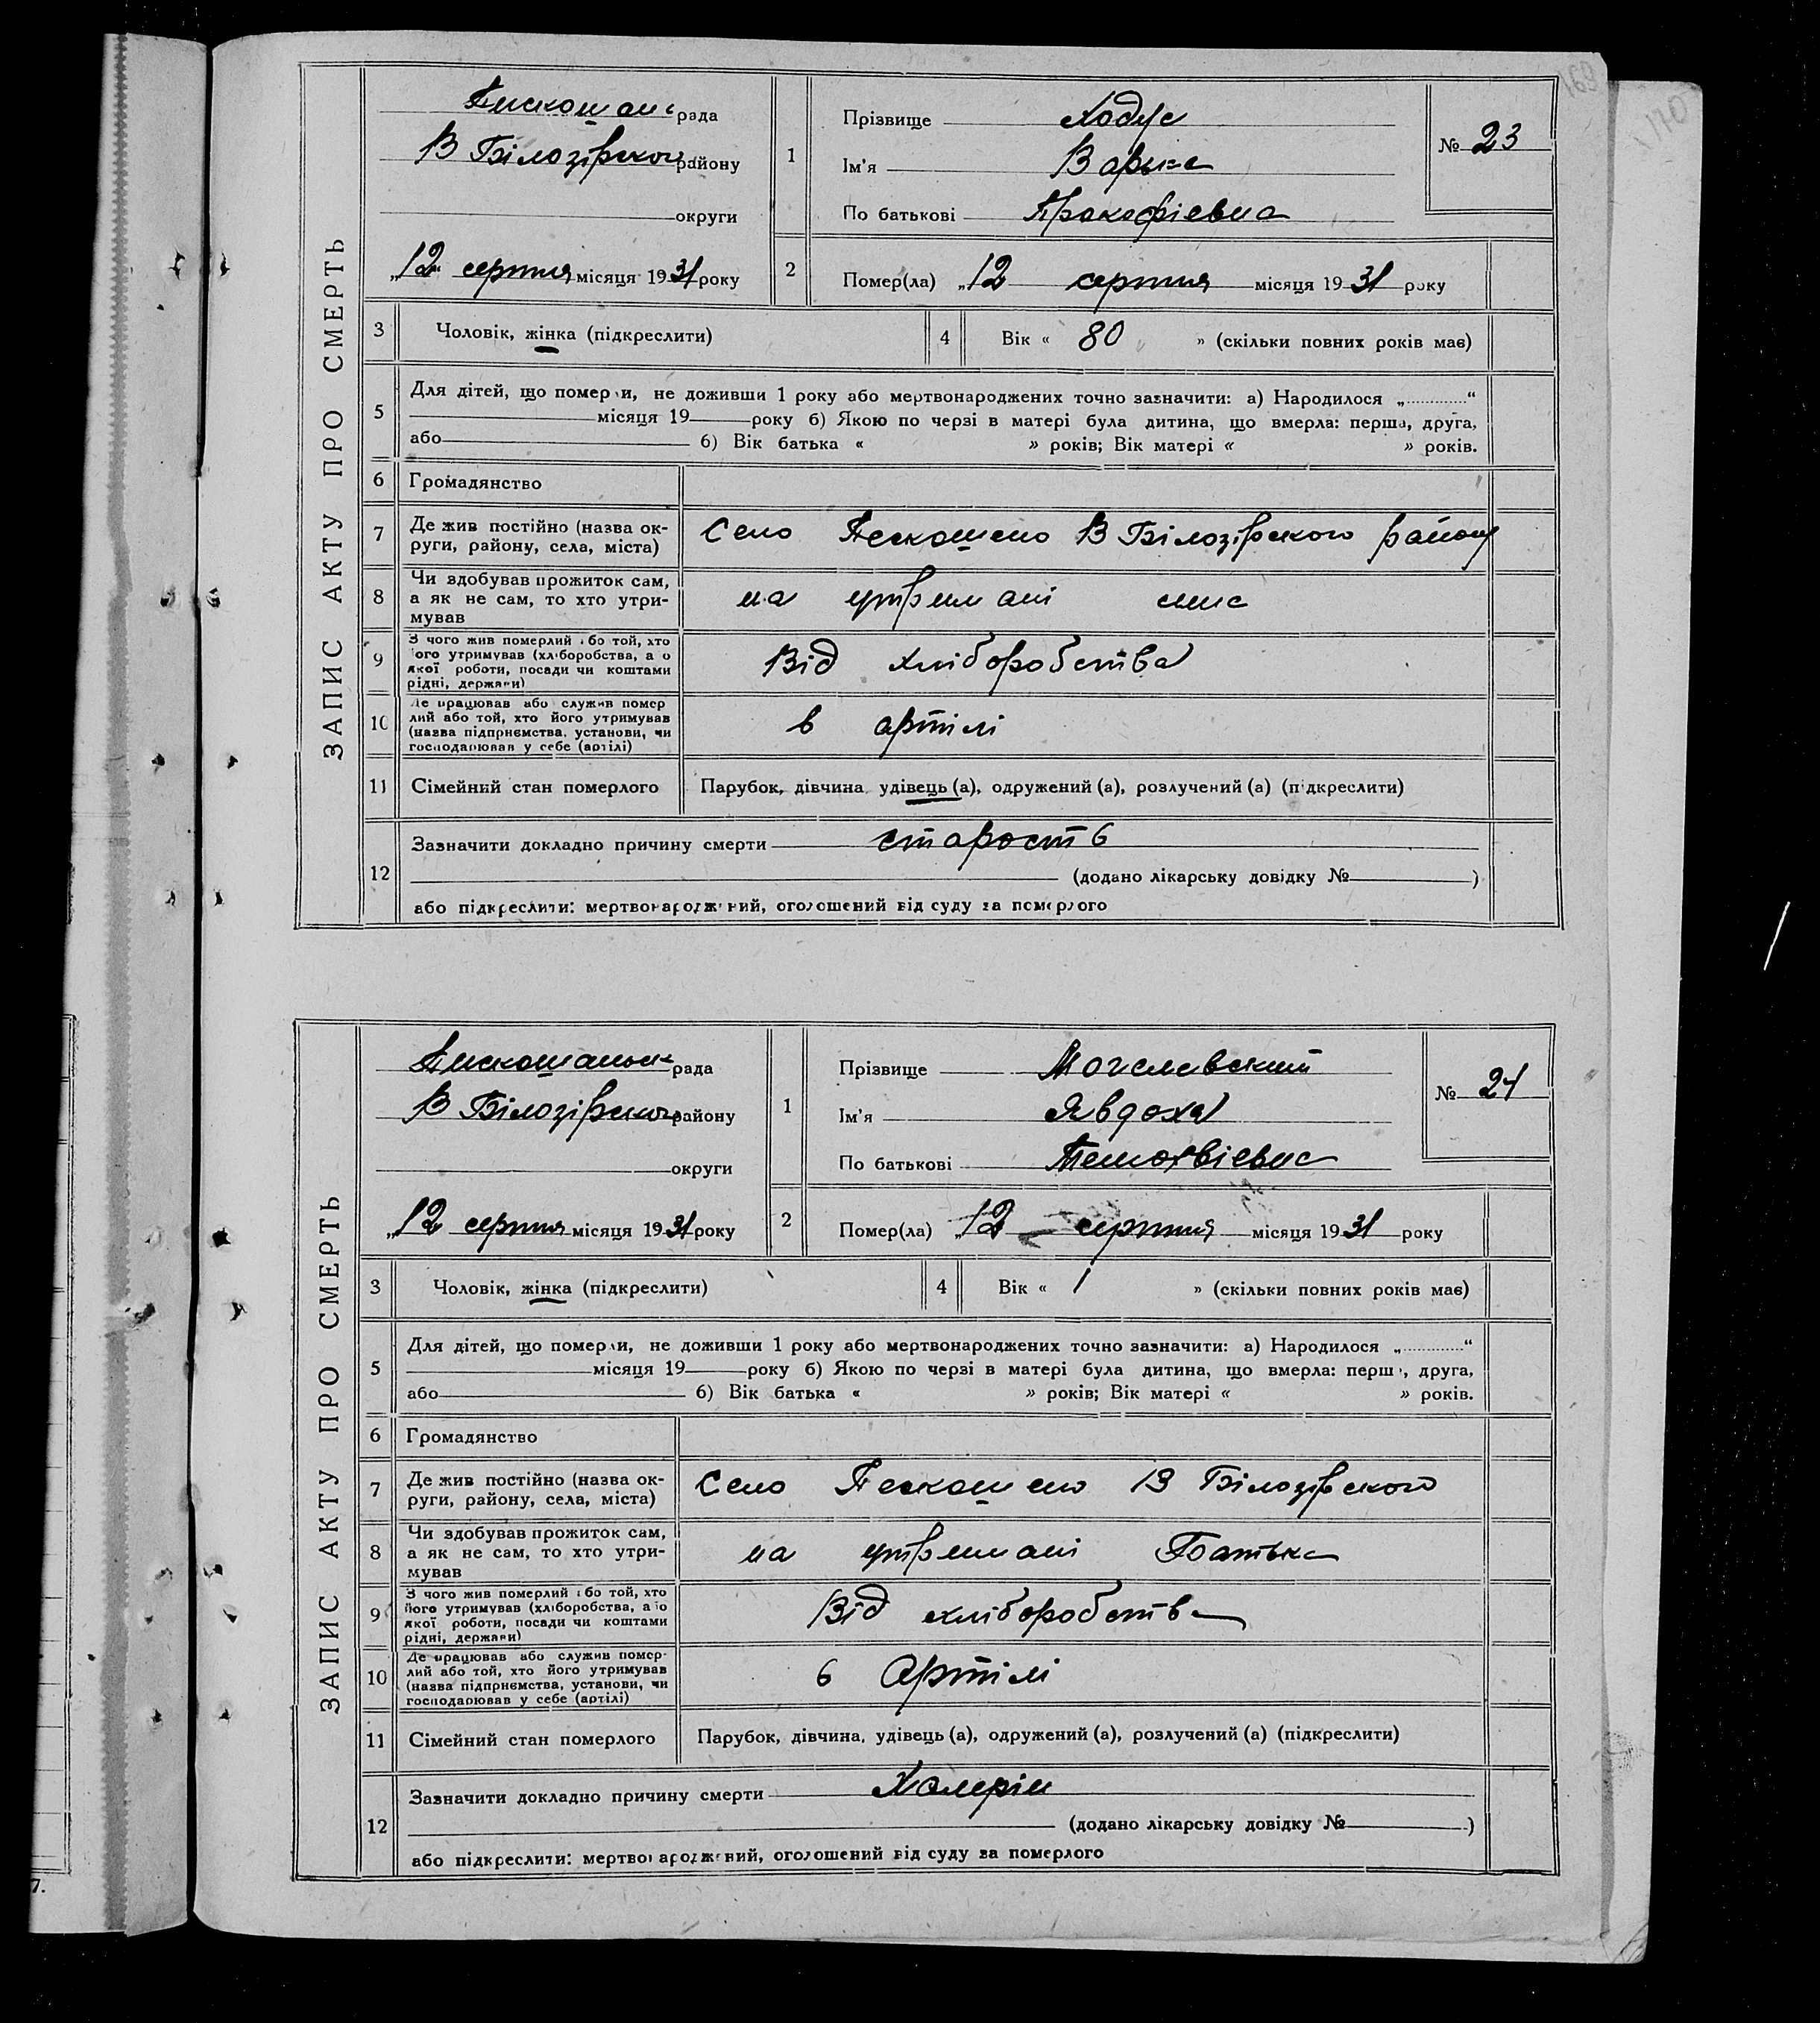 169
170
ЗАПИС АКТУ ПРО СМЕРТЬ
Пискошанс рада
В Білозірского району
округи
„12 серпня місяця 1931 року
1
Прізвище Ходус
Ім'я Варька
По батькові Прокофіевна
№ 23
2 Помер(ла) „12 серпня місяця 1931 року
3 Чоловік, жінка (підкреслити)
4 Вік « 80 » (скільки повних років має)
5 Для дітей, що померли, не доживши 1 року або мертвонароджених точно зазначити: а) Народилося „ “
місяця 19 року б) Якою по черзі в матері була дитина, що вмерла: перша, друга,
або б) Вік батька « » років; Вік матері « » років.
6 Громадянство
7 Де жив постійно (назва округи, району, села, міста) Село Пескошено В Білозірского району
8 Чи здобував прожиток сам, а як не сам, то хто утримував на утримані сина
9 З чого жив померлий або той, хто його утримував (хліборобства, або якої роботи, посади чи коштами рідні, держави) Від хліборобства
10 Де працював або служив помер лий або той, хто його утримував (назва підприємства, установи, чи господарював у себе (артілі) в артілі
11 Сімейний стан померлого Парубок, дівчина, удівець (а), одружений (а), розлучений (а) (підкреслити)
12 Зазначити докладно причину смерти старость
(додано лікарську довідку № )
або підкреслити: мертвонароджений, оголошений від суду за померлого
ЗАПИС АКТУ ПРО СМЕРТЬ
Пискошанськ рада
В Білозірского району
округи
„12 серпня місяця 1931 року
1
Прізвище Могелевский
Ім'я Явдоха
По батькові
№ 24
2 Помер(ла) „12 серпня місяця 1931 року
3 Чоловік, жінка (підкреслити)
4 Вік « 1 » (скільки повних років має)
5 Для дітей, що померли, не доживши 1 року або мертвонароджених точно зазначити: а) Народилося „ “
місяця 19 року б) Якою по черзі в матері була дитина, що вмерла: перша, друга,
або б) Вік батька « » років; Вік матері « » років.
6 Громадянство
7 Де жив постійно (назва округи, району, села, міста) Село Пескошено В Білозірского
8 Чи здобував прожиток сам, а як не сам, то хто утримував на утримані Батька
9 З чого жив померлий або той, хто його утримував (хліборобства, або якої роботи, посади чи коштами рідні, держави) Від хліборобства
10 Де працював або служив помер-лий або той, хто його утримував (назва підприємства, установи, чи господарював у себе (артілі) в Артілі
11 Сімейний стан померлого Парубок, дівчина, удівець (а), одружений (а), розлучений (а) (підкреслити)
12 Зазначити докладно причину смерти Холерін
(додано лікарську довідку № )
або підкреслити: мертвонароджений, оголошений від суду за померлого
7.